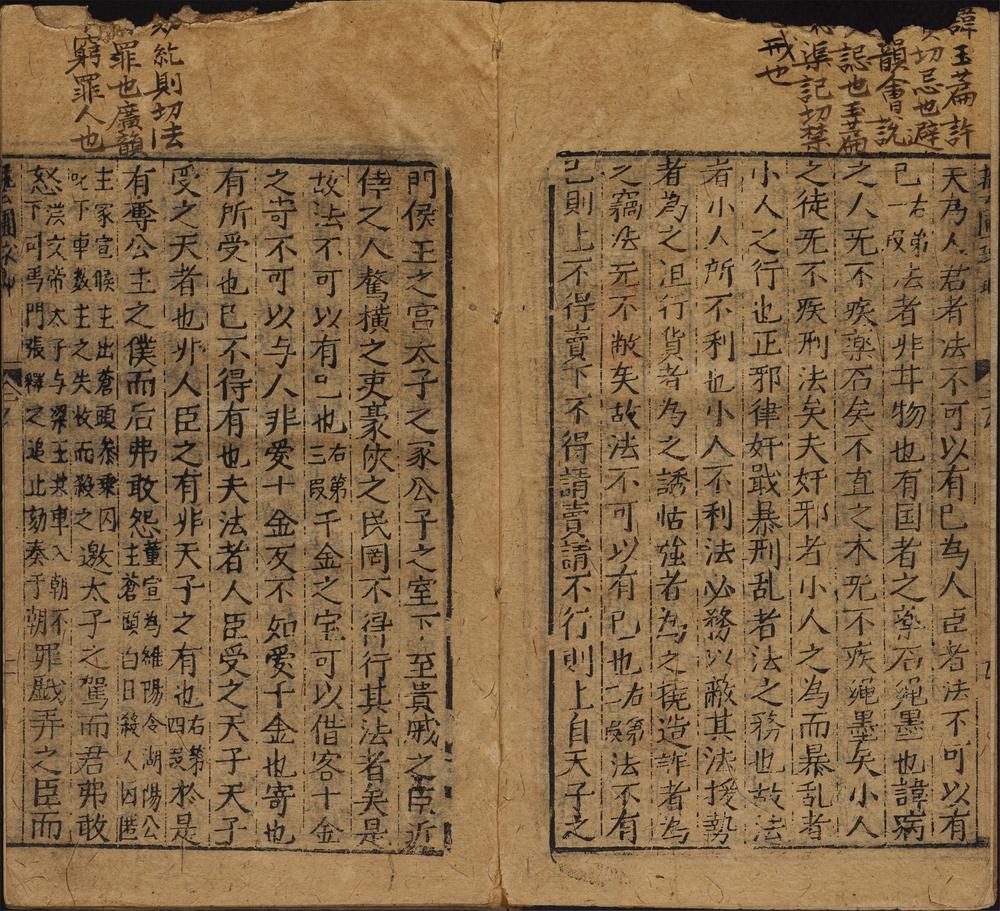 諱玉篇許
切忌也避
韻會說
忌也玉篇
渠記切禁
戒也
天乃人君者法不可以有已為人臣者法不可以有
已右第一段法者非甘物也有国者之藥石绳墨也諱病
之人无不疾藥石矣不直之木无不疾绳墨矣小人
之徒无不疾刑法矣夫奸邪者小人之為而暴乱者
小人之行也正邪律奸戢暴刑乱者法之務也故法
者小人所不利也小人不利法必務以敝其法援勢
者為之沮行貨者為之誘怙強者為之撓造詐者為
之竊法无不敝矣故法不可以有已也右第二段法不有
已則上不得賣下不得請賣請不行則上自天子之
糺則切法
罪也廣韻
窮罪人也
門侯王之宮太子之家公子之室下至貴戚之臣近
倖之人驁横之吏豪俠之民罔不得行其法者矣是
故法不可以有已也右第三段千金之宝可以借客十金
之寄不可以与人非爱十金反不如爱千金也寄也
有所受也已不得有也夫法者人臣受之天子天子
受之天者也非人臣之有非天子之有也右第四段於是
有辱公主之僕而后弗敢怨董宣為雒陽令湖陽公主蒼頭白日殺人因匿
主家宣候主出蒼頭参乗因叱下車数主之失收而殺之邀太子之駕而君弗敢
怒漢文帝太子与梁王共車入朝不下司馬門張释之追止劾奏于朝罪戲弄之臣而